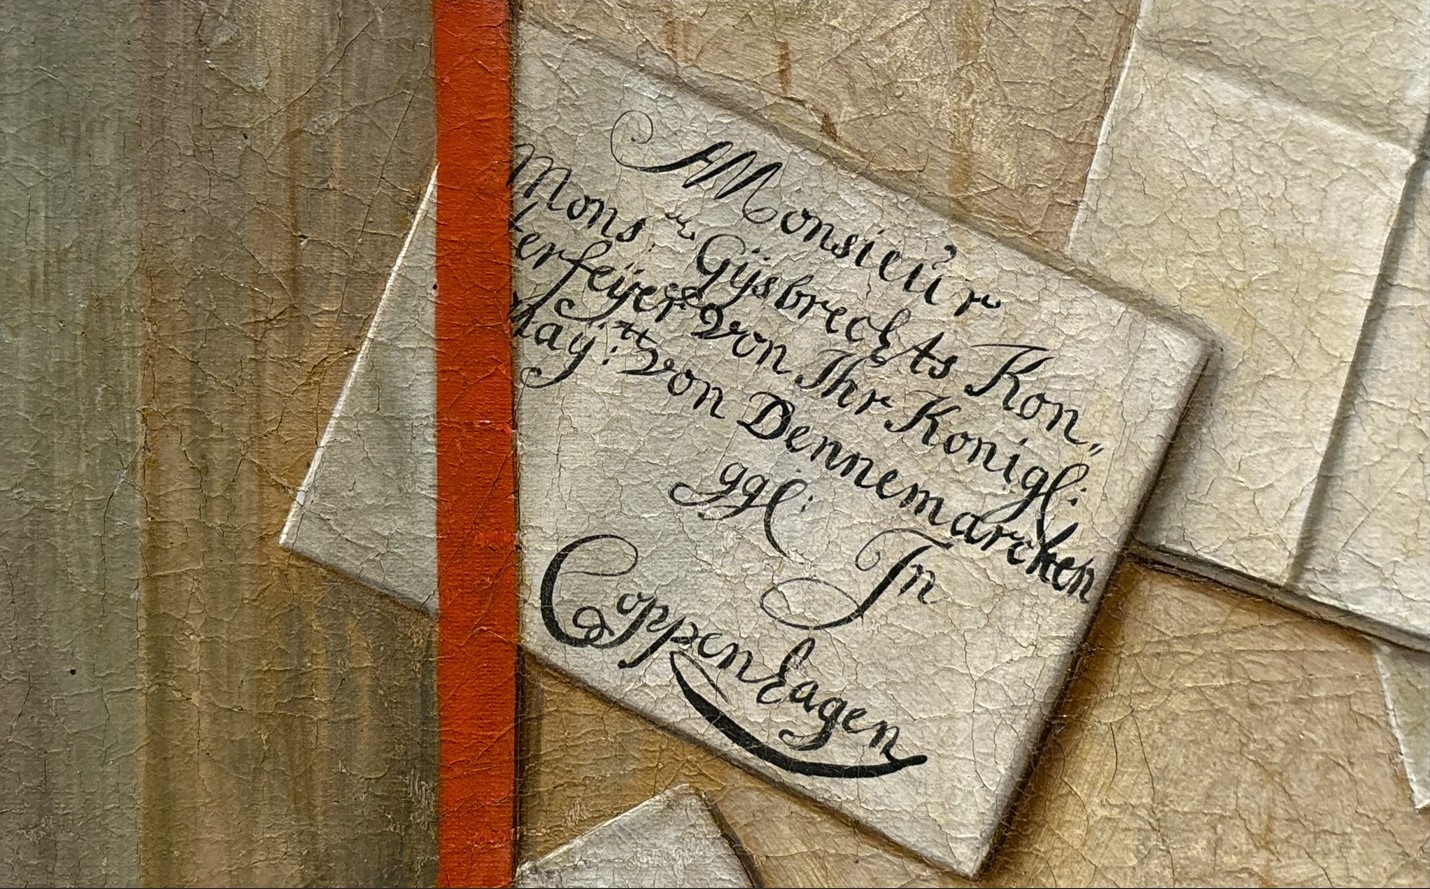 A Monsieúr
Mons:ᵘʳ Gÿsbrechts Kon„
terfeÿer von Ihr Königl:
Maÿ:ᵗᵗ von Dennemarcken
ggl: In
Coppenhagen